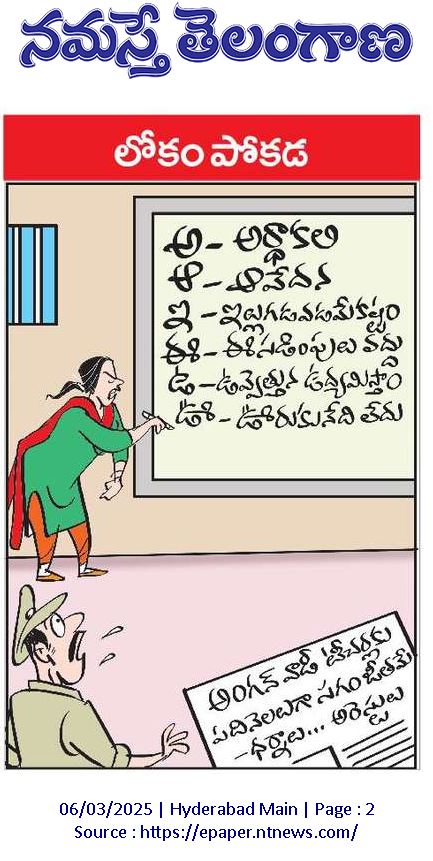 నమస్తే తెలంగాణ
లోకం పోకడ
అ - అర్ధాకలి
ఆ - ఆవేదన
ఇ - ఇల్లుగడవడమేకష్టం
ఈ - ఈసడింపులు వద్దు
ఉ - ఉవ్వెత్తున ఉద్యమిస్తాం
ఊ - ఊరుకునేది లేదు
అంగన్ వాడీ టీచర్లకు
పదినెలలుగా సగం జీతమే
- ధర్నాలు... అరెస్టులు
06/03/2025 | Hyderabad Main | Page : 2
Source : https://epaper.ntnews.com/